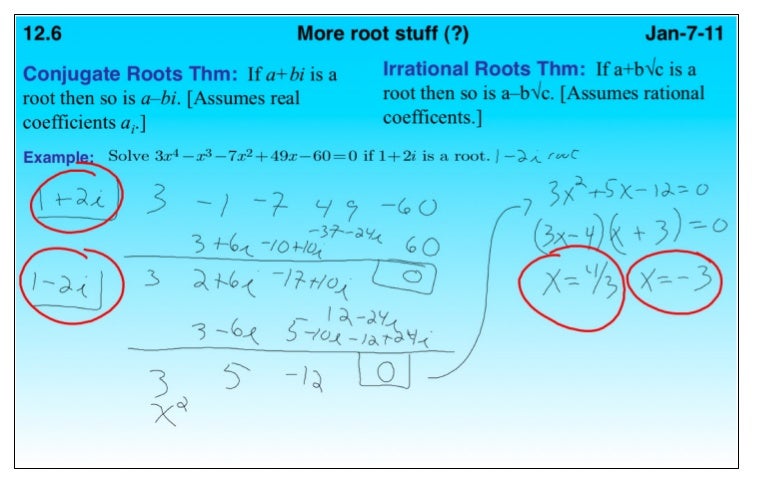 12.6 More root stuff (?) Jan-7-11
Conjugate Roots Thm: If a+bi is a
root then so is a–bi. [Assumes real
coefficients aᵢ.]
Irrational Roots Thm: If a+b√c is a
root then so is a–b√c. [Assumes rational
coefficents.]
Example: Solve 3x⁴−x³−7x²+49x−60=0 if 1+2i is a root. 1−2i root
1+2i 3 -1 -7 49 -60
3+6i -10+10i -37-24i 60
1-2i 3 2+6i -17+10i 12-24i 0
3-6i 5-10i -12+24i
3 5 -12 0
x²
3x²+5x-12=0
(3x-4)(x+3)=0
x=4/3 x=-3